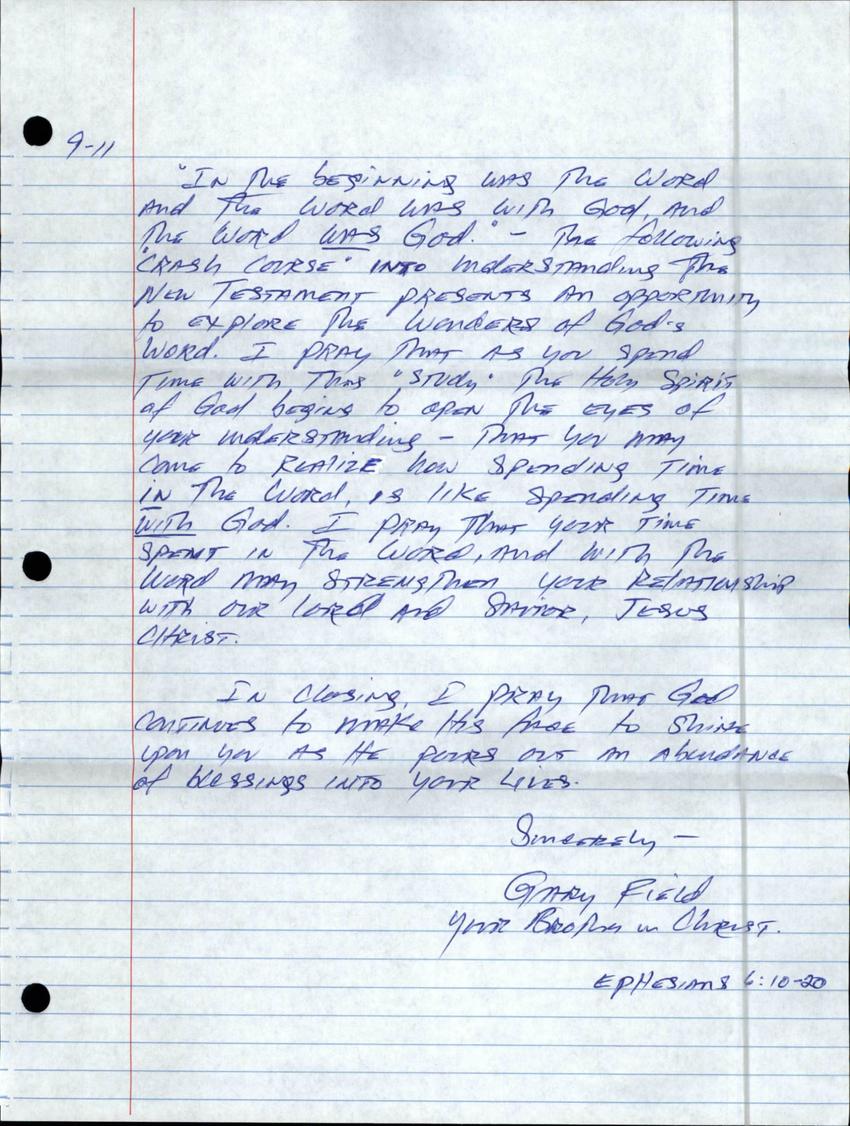 9-11
"In the beginning was the Word
and the Word was with God, and
the Word was God." - The following
"crash course" into understanding the
New Testament presents an opportunity
to explore the wonders of God's
Word. I pray that as you spend
time with this "study" the Holy Spirit
of God begins to open the eyes of
your understanding - that you may
come to realize how spending time
in the Word, is like spending time
with God. I pray that your time
spent in the Word, and with the
Word may strengthen your relationship
with our Lord and Savior, Jesus
Christ.
In closing, I pray that God
continues to make His face to shine
upon you as He pours out an abundance
of blessings into your lives.
Sincerely -
Gary Field
Your Brother in Christ.
Ephesians 6:10-20